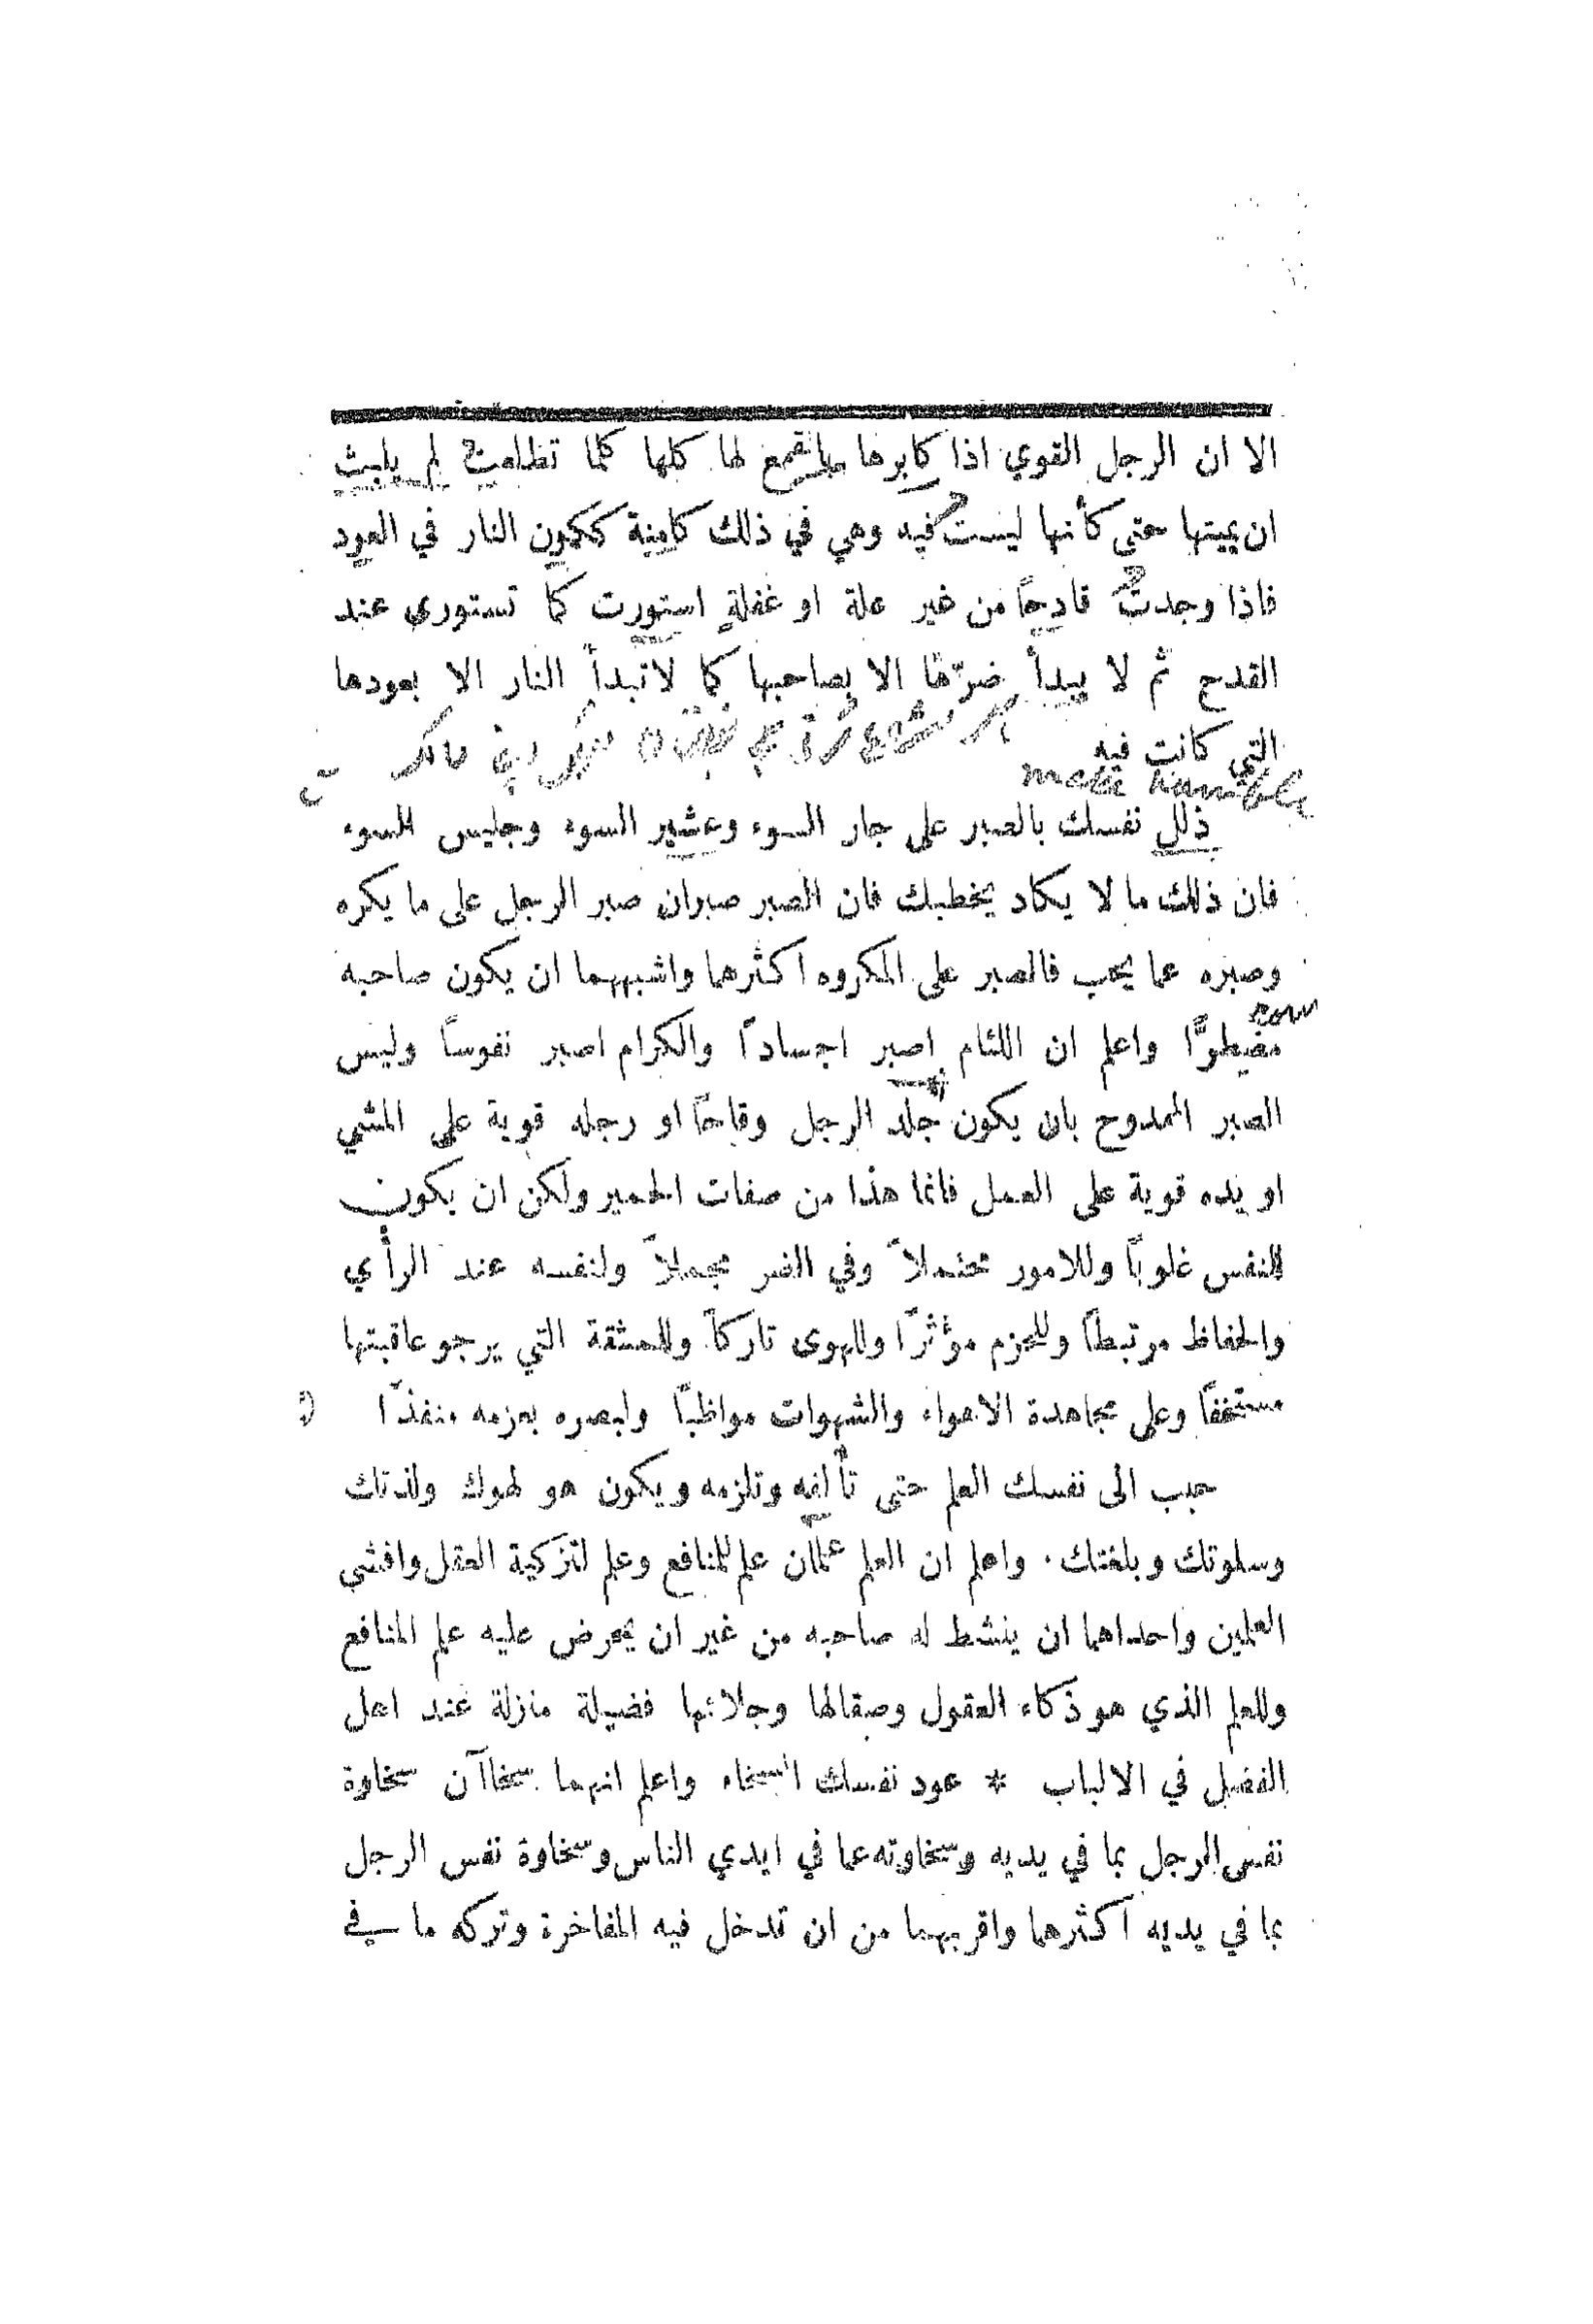 الا ان الرجل القوي اذا كابرها بالقمع لها كلها كلما تطلعت لم يلبث
ان يميتها حتى كأنها ليست فيه وهي في ذلك كامنة ككمون النار في العود
فاذا وجدت قادحًا من غير علة او غفلةٍ استورت كما تستورى عند
القدح ثم لا يبدأ ضرّها الا بصاحبها كما لا تبدأ النار الا بعودها
التي كانت فيه
make humble
ذلل نفسك بالصبر على جار السوء وعشير السوء وجليس السوء
فان ذلك ما لا يكاد يخطيك فان الصبر صبران صبر الرجل على ما يكره
وصبره عما يحب فالصبر على المكروه اكثرهما واشبههما ان يكون صاحبه
مضطرًّا واعلم ان اللئام اصبر اجسادًا والكرام اصبر نفوسًا وليس
الصبر الممدوح بان يكون جلد الرجل وقاحًا او رجله قوية على المشي
او يده قوية على العمل فانما هذا من صفات الحمير ولكن ان يكون
للنفس غلوبًا وللامور محتملاً وفي الضر مجملاً ولنفسه عند الرأي
والحفاظ مرتبطًا وللحزم مؤثرًا وللهوى تاركًا وللمشقة التي يرجو عاقبتها
مستخفًا وعلى مجاهدة الاهواء والشهوات مواظبًا ولبصره بعزمه منفذًا
حبب الى نفسك العلم حتى تألفه وتلزمه ويكون هو لهوك ولذتك
وسلوتك وبلغتك. واعلم ان العلم علمان علم للمنافع وعلم لتزكية العقل وافشى
العلمين واحداهما ان ينشط له صاحبه من غير ان يحرض عليه علم المنافع
وللعلم الذي هو ذكاء العقول وصقالها وجلائها فضيلة منزلة عند اهل
الفضل في الالباب * عود نفسك السخاء واعلم انهما سخاآن سخاوة
نفس الرجل بما في يديه وسخاوته عما في ايدي الناس وسخاوة نفس الرجل
بما في يديه اكثرهما واقربهما من ان تدخل فيه المفاخرة وتركه ما في